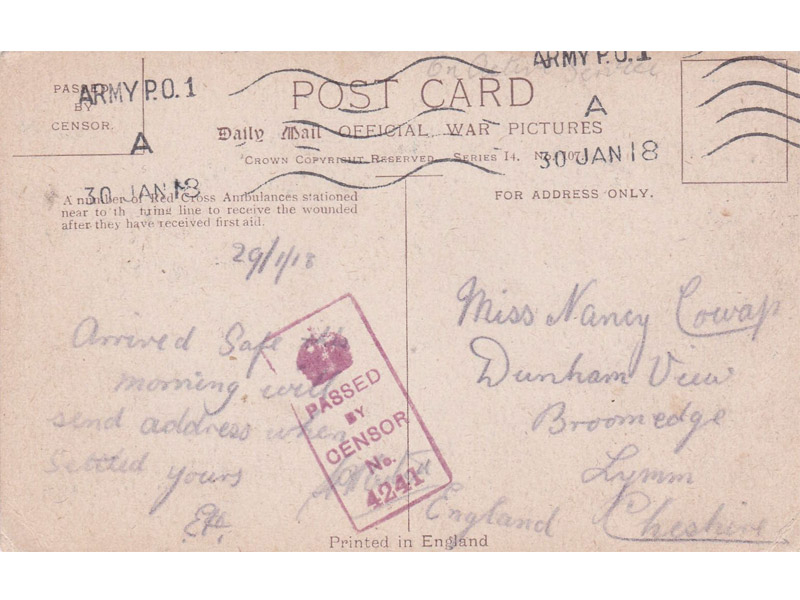 On Active Service
ARMY P.O.1
A
30 JAN 18
ARMY P.O.1
A
30 JAN 18
PASSED
BY
CENSOR.
POST CARD
Daily Mail OFFICIAL WAR PICTURES
CROWN COPYRIGHT RESERVED. SERIES 14. No.
A number of Red Cross Ambulances stationed
near to the firing line to receive the wounded
after they have received first aid.
FOR ADDRESS ONLY.
29/1/18
Arrived Safe this
morning will
send address when
Settled yours
PASSED
BY
CENSOR
No.
4241
Miss Nancy Cowap
Dunham View
Broomedge
Lymm
England Cheshire
Printed in England